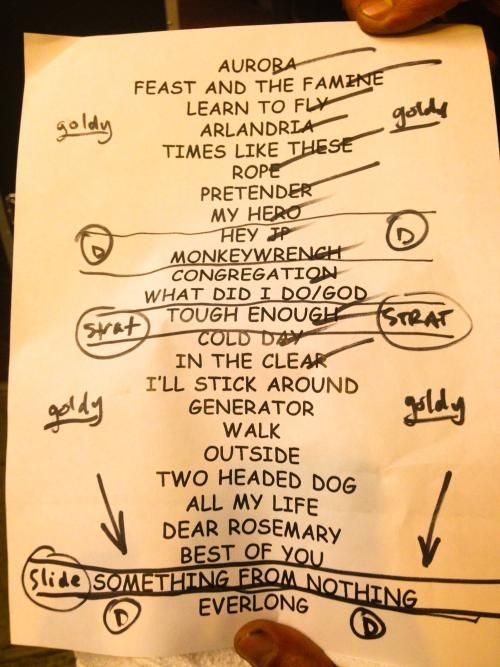 AUROBA
FEAST AND THE FAMINE
LEARN TO FLY
goldy ARLANDRIA goldy
TIMES LIKE THESE
ROPE
PRETENDER
MY HERO
D HEY JP D
MONKEYWRENCH
CONGREGATION
WHAT DID I DO/GOD
Strat TOUGH ENOUGH STRAT
COLD DAY
IN THE CLEAR
I'LL STICK AROUND
goldy GENERATOR goldy
WALK
OUTSIDE
TWO HEADED DOG
ALL MY LIFE
DEAR ROSEMARY
BEST OF YOU
Slide SOMETHING FROM NOTHING
D EVERLONG D